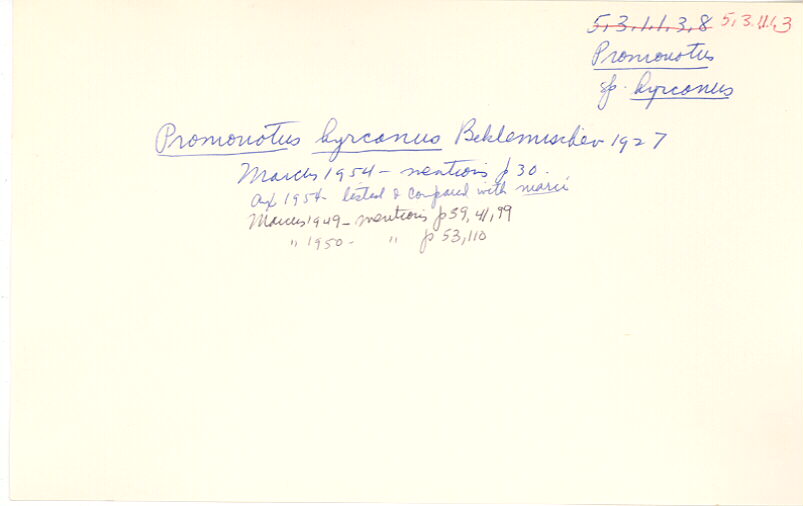 5,3,1,1,3,8 5,3,11,3
Promonotus
sp. hyrcanus
Promonotus hyrcanus Beklemischev 1927
Marcus 1954 - mentions p 30.
Ax 1954 - listed & compared with marci
Marcus 1949 - mentions p 39, 41, 99
" 1950 - " p 53, 110